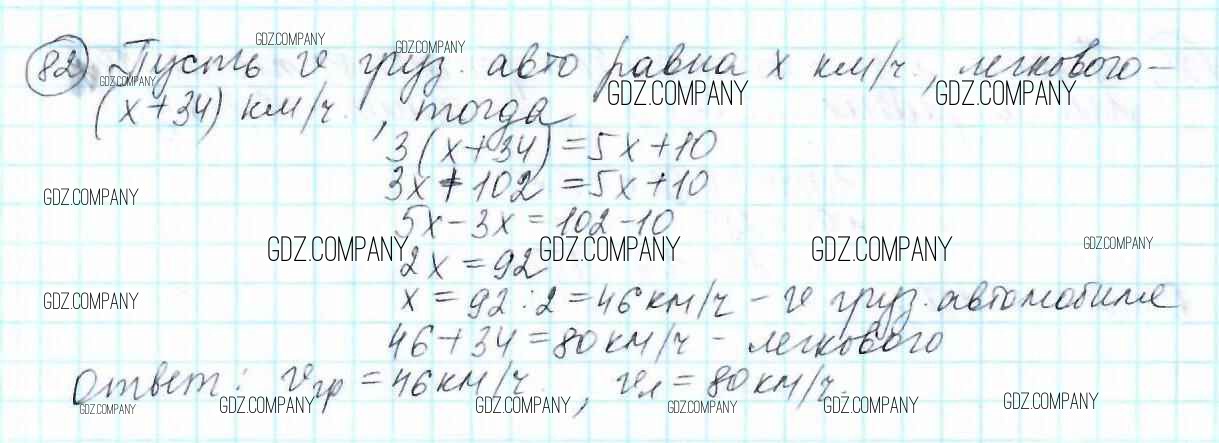 82) Пусть v груз. авто равна x км/ч, легкового –
(x+34) км/ч., тогда
3(x+34)=5x+10
3x+102=5x+10
5x-3x=102-10
2x=92
x=92:2=46 км/ч – v груз. автомобиля
46+34=80 км/ч – легкового
Ответ: vгр=46 км/ч, vл=80 км/ч.
GDZ.COMPANY GDZ.COMPANY
GDZ.COMPANY GDZ.COMPANY GDZ.COMPANY
GDZ.COMPANY
GDZ.COMPANY GDZ.COMPANY GDZ.COMPANY GDZ.COMPANY
GDZ.COMPANY
GDZ.COMPANY GDZ.COMPANY GDZ.COMPANY GDZ.COMPANY GDZ.COMPANY GDZ.COMPANY